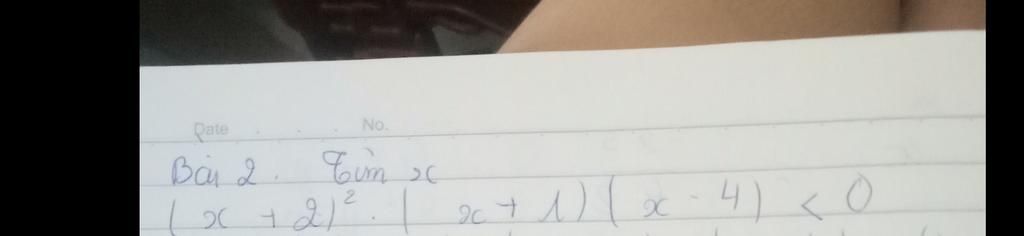 Date . . . No.
Bài 2. Tìm x
(x + 2)². (x + 1) (x - 4) < 0